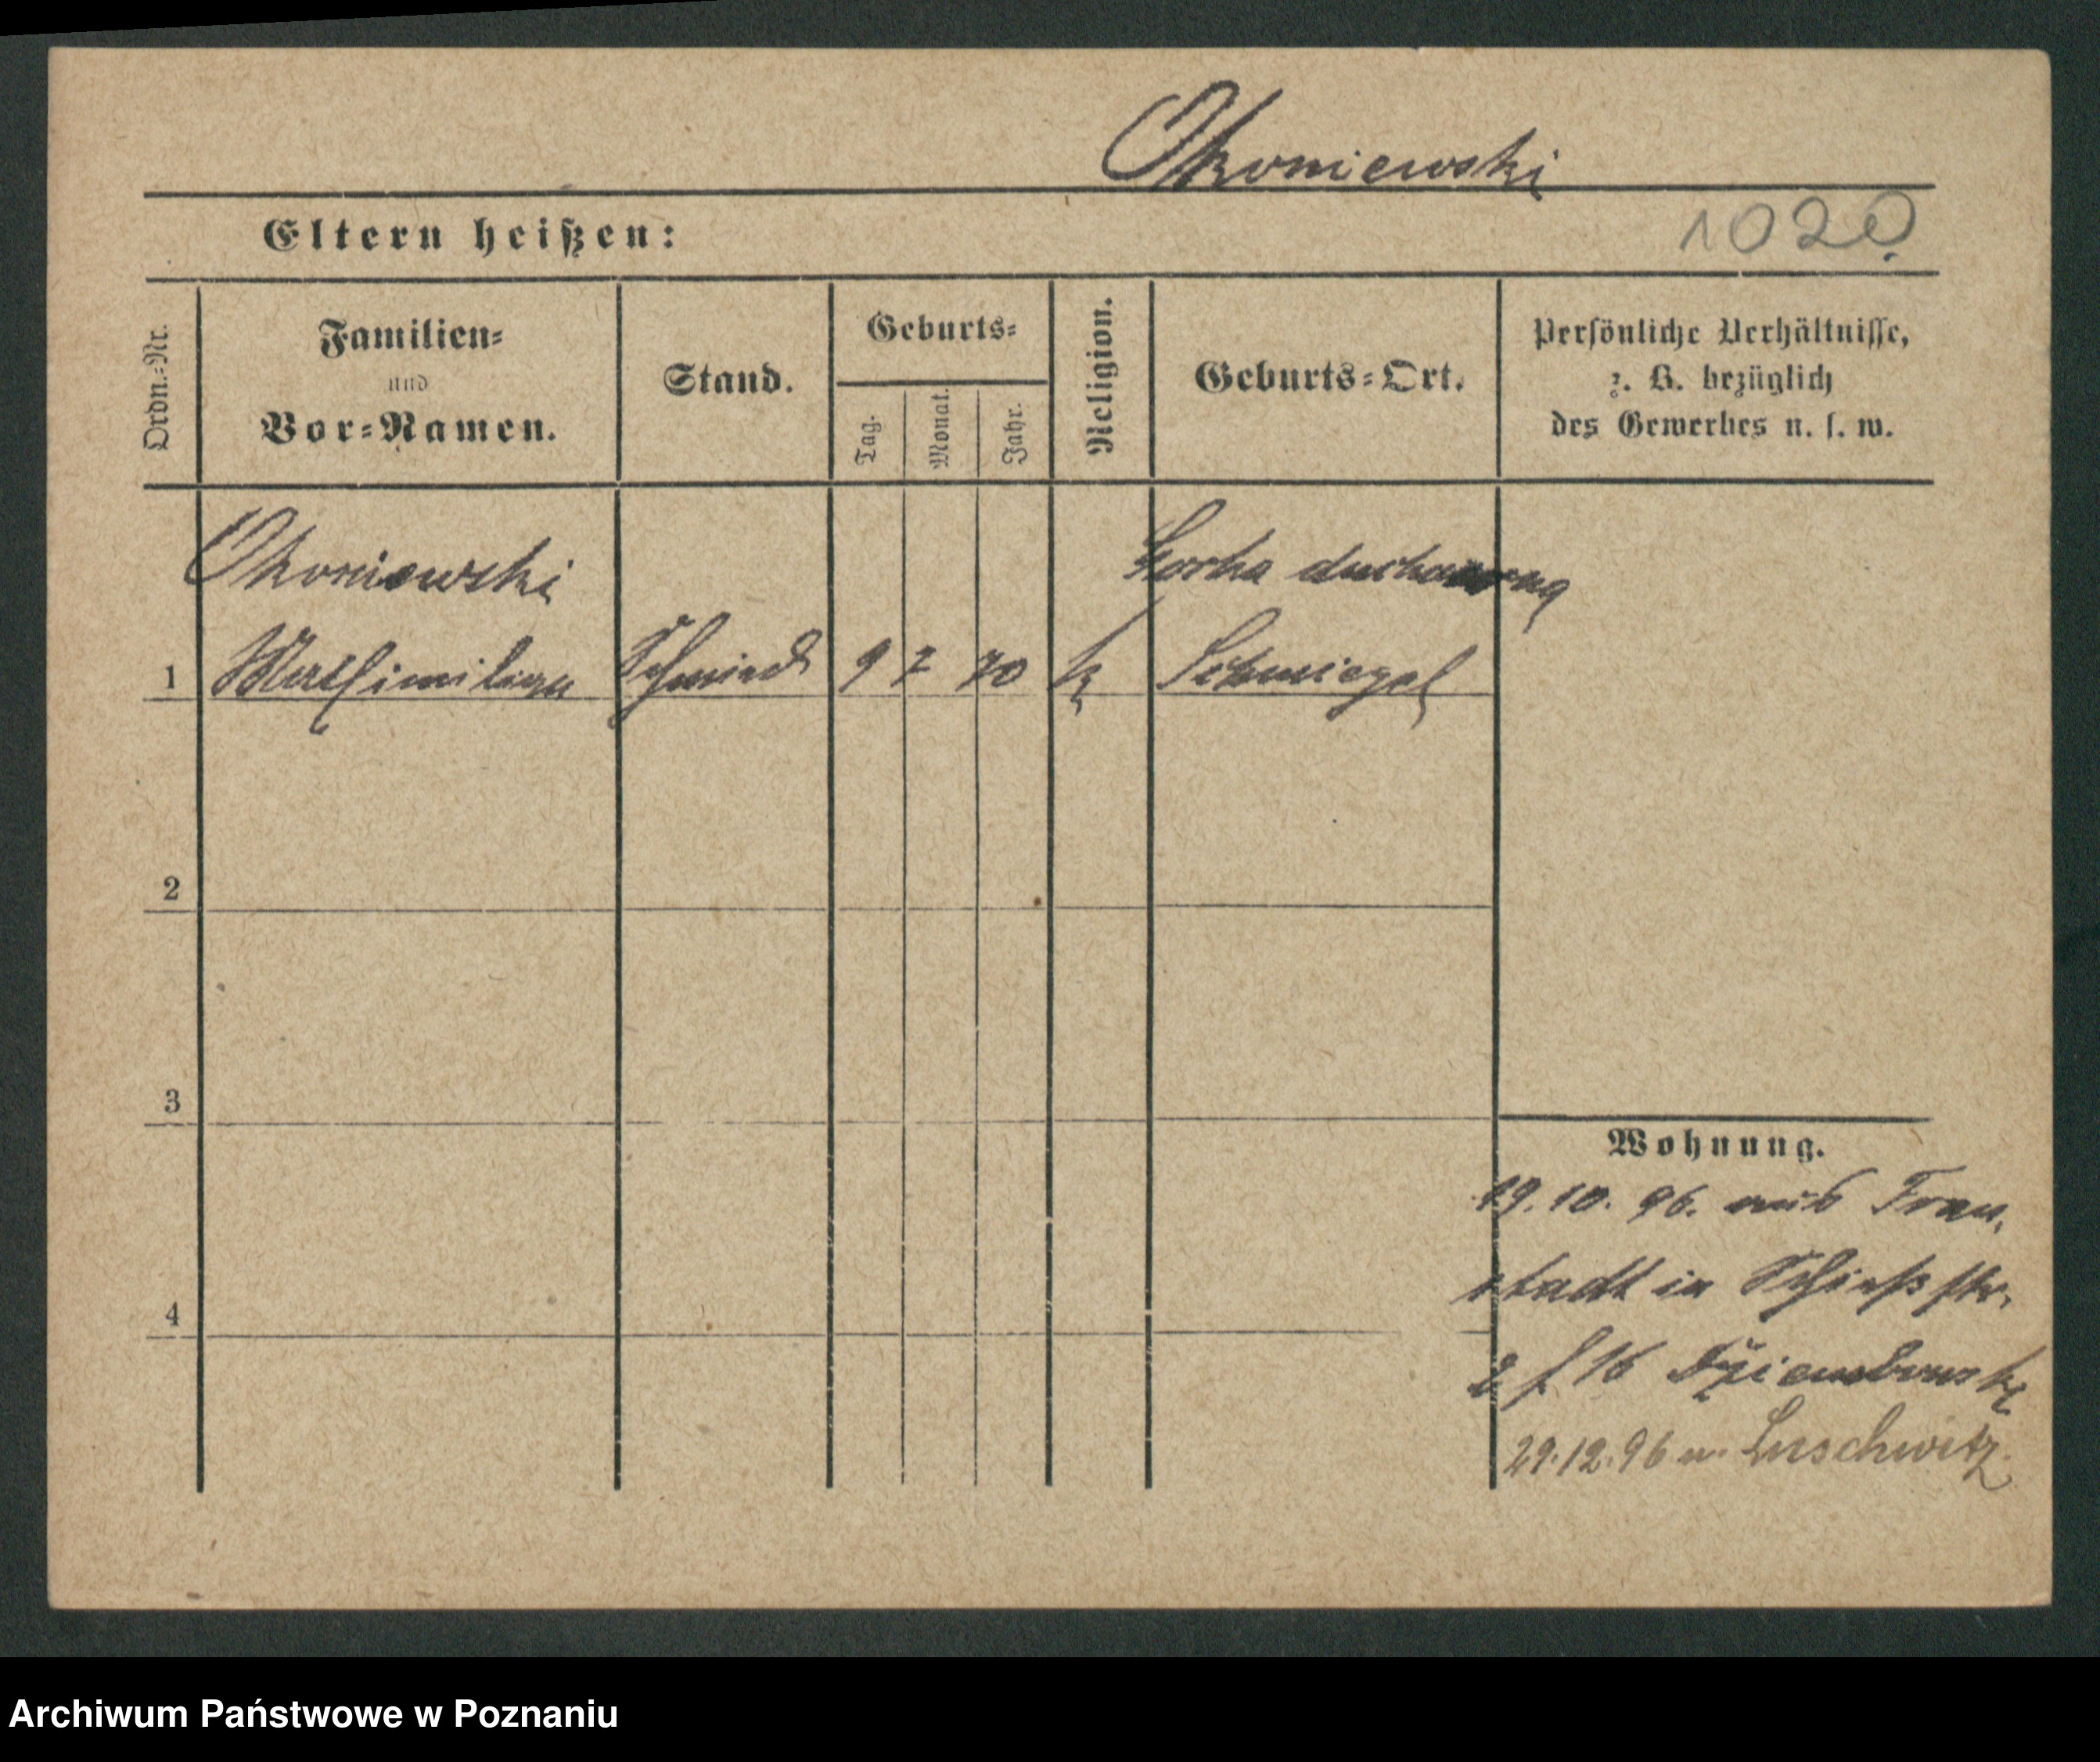 Okoniewski
Eltern heißen:
1020
Ordn.-Nr.
Familien-
und
Vor-Namen.
Stand.
Geburts-
Tag.
Monat.
Jahr.
Religion.
Geburts-Ort.
Persönliche Verhältnisse,
z. B. bezüglich
des Gewerbes u. s. w.
Okoniewski
Gorka duchowna
1 Maximilian Schmied 9 7 70 k Schmiegel
2
3
4
Wohnung.
19.10.96. aus Frau-
stadt in Schießstr.
2 f 16
29.12.96 n. Luschwitz
Archiwum Państwowe w Poznaniu